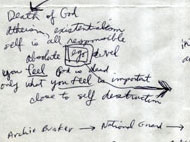 Death of God
Atheism, existentialism
self is all responsible
absolute ego devil
you feel God is dead
only what you feel is important
close to self destruction
Archie Bunker → National Guard →